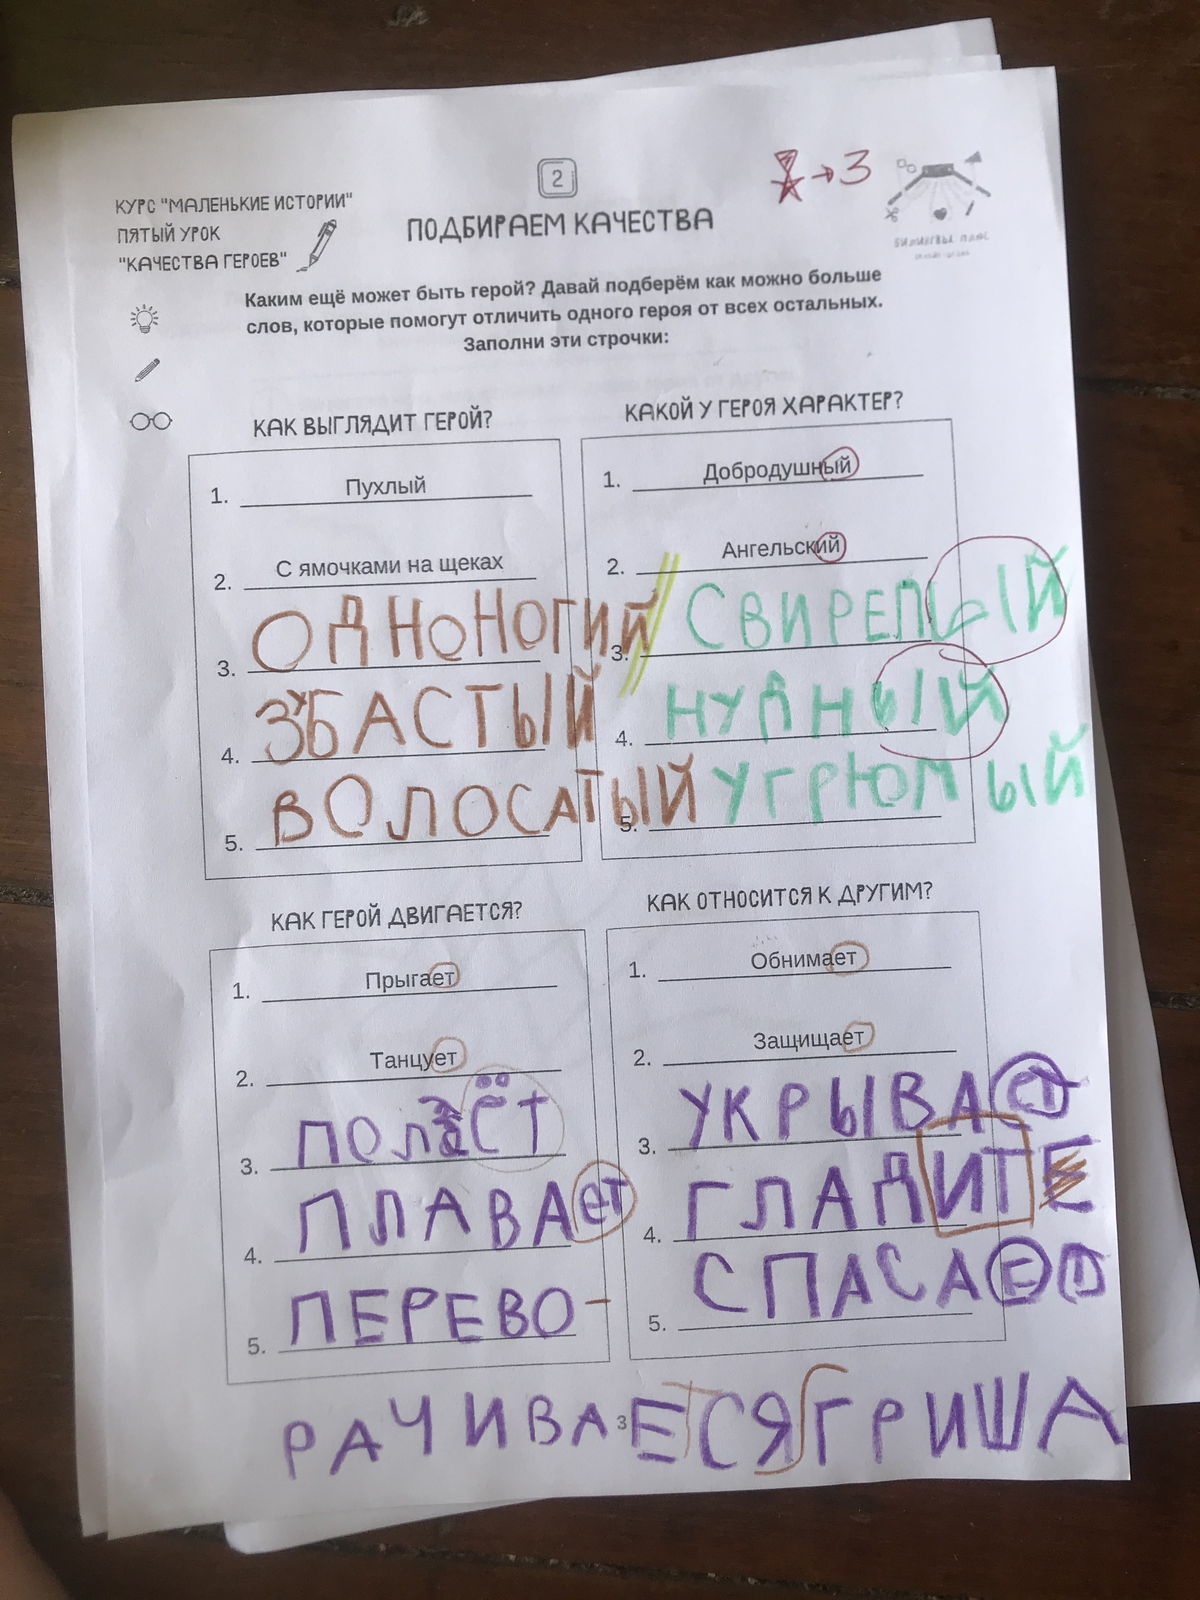 2
→3
КУРС "МАЛЕНЬКИЕ ИСТОРИИ"
ПЯТЫЙ УРОК
"КАЧЕСТВА ГЕРОЕВ"
ПОДБИРАЕМ КАЧЕСТВА
Каким ещё может быть герой? Давай подберём как можно больше
слов, которые помогут отличить одного героя от всех остальных.
Заполни эти строчки:
КАК ВЫГЛЯДИТ ГЕРОЙ?
1. Пухлый
2. С ямочками на щеках
3. ОДНОНОГИЙ
4. ЗУБАСТЫЙ
5. ВОЛОСАТЫЙ
КАКОЙ У ГЕРОЯ ХАРАКТЕР?
1. Добродушный
2. Ангельский
3. СВИРЕПЫЙ
4. НУДНЫЙ
5. УГРЮМЫЙ
КАК ГЕРОЙ ДВИГАЕТСЯ?
1. Прыгает
2. Танцует
3. ПОЛЗЁТ
4. ПЛАВАЕТ
5. ПЕРЕВО-
РАЧИВАЕТСЯ
КАК ОТНОСИТСЯ К ДРУГИМ?
1. Обнимает
2. Защищает
3. УКРЫВАЕТ
4. ГЛАДИТ
5. СПАСАЕТ
ГРИША
3